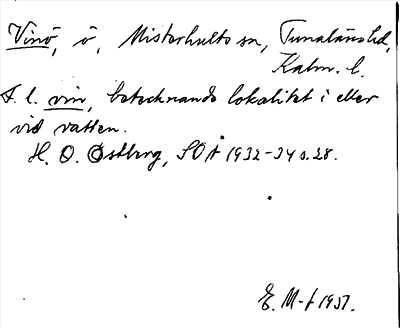 Vinö, ö, Misterhults sn, Tunaläns hd,
Kalm. l.
F. l. vin, betecknande lokalitet i eller
vid vatten.
H. O. Östberg, SOÅ 1932-34 s. 28.
E. M-f 1957.